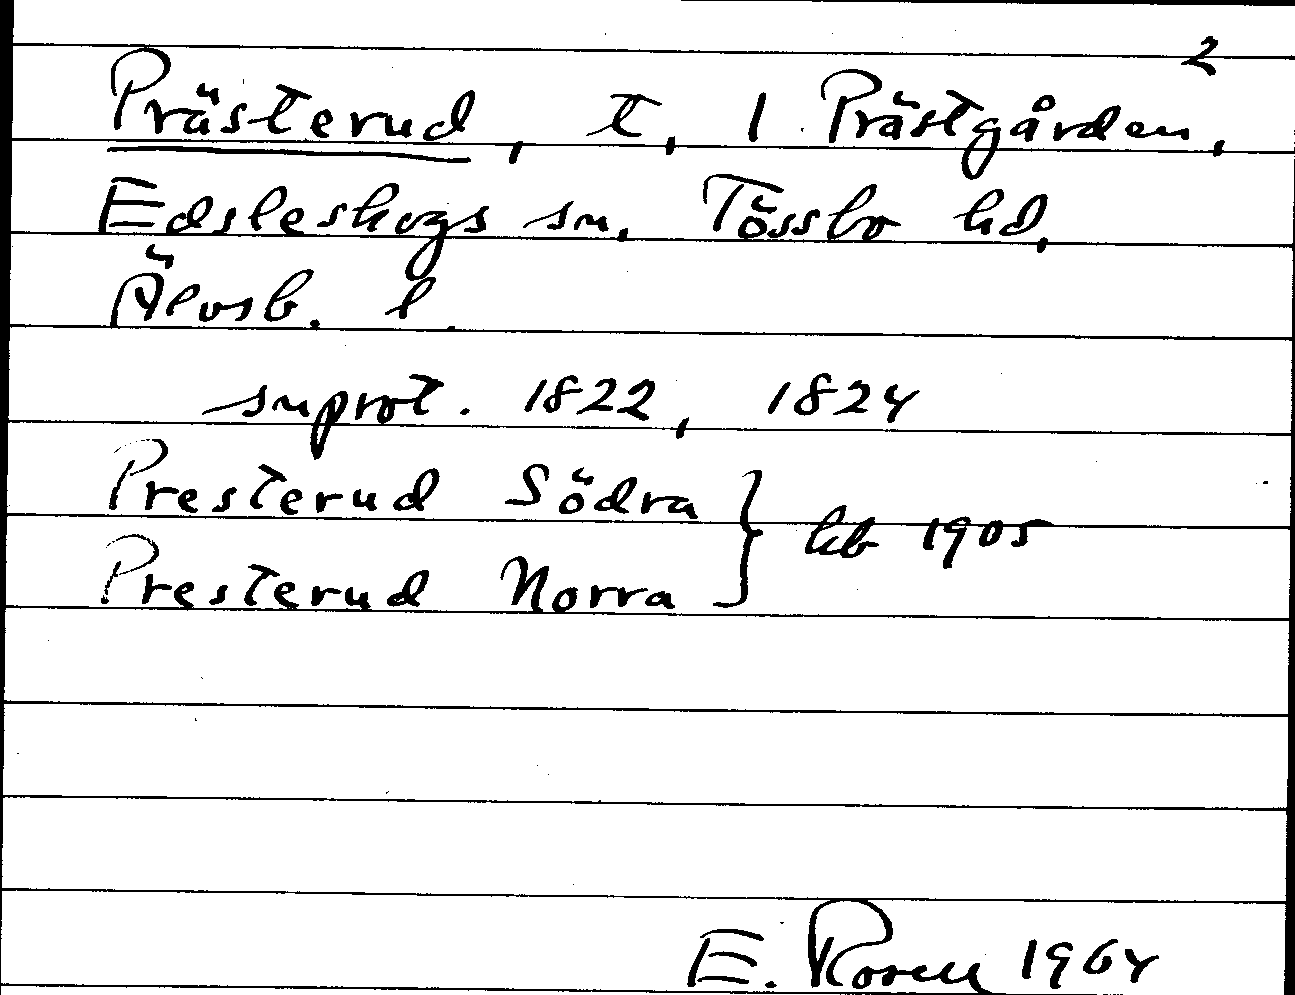 2
Prästerud, t, 1 Prästgården,
Edsleskogs sn, Tössbo hd,
Älvsb. l.
snprot. 1822, 1824
Presterud Södra } hb 1905
Presterud Norra
E. Rosell 1964